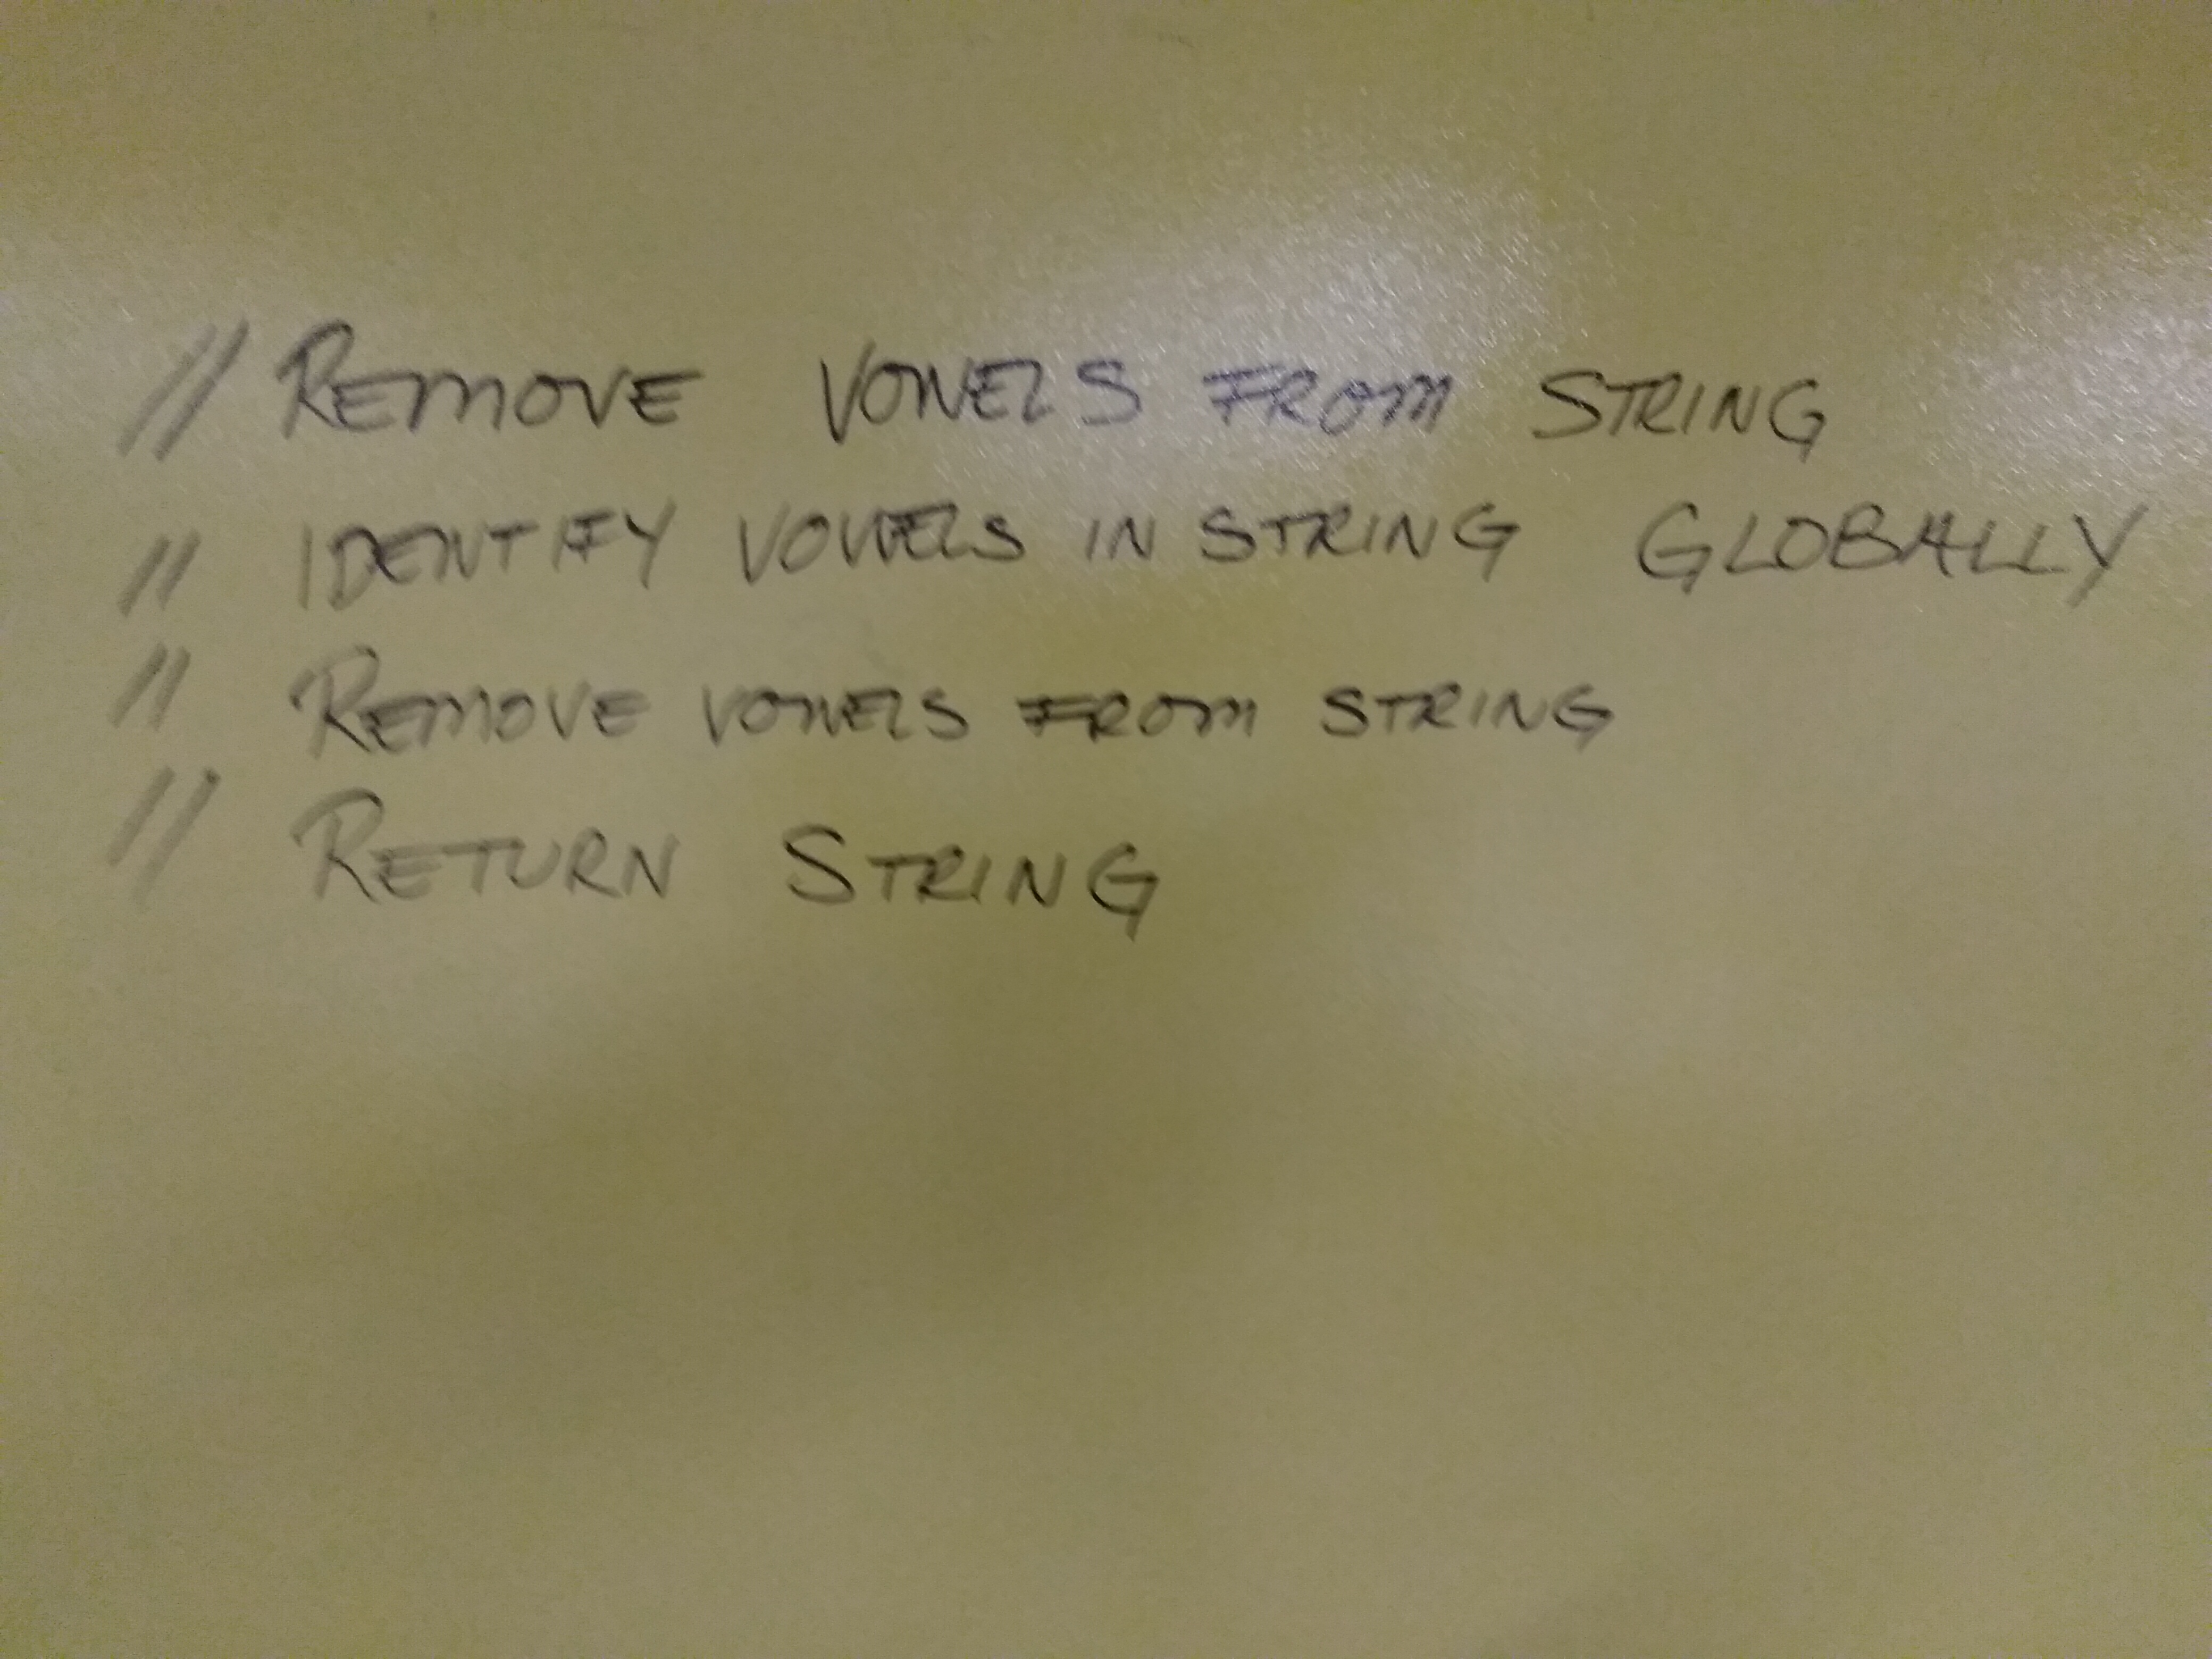 // REMOVE VOWELS FROM STRING
// IDENTIFY VOWELS IN STRING GLOBALLY
// REMOVE VOWELS FROM STRING
// RETURN STRING